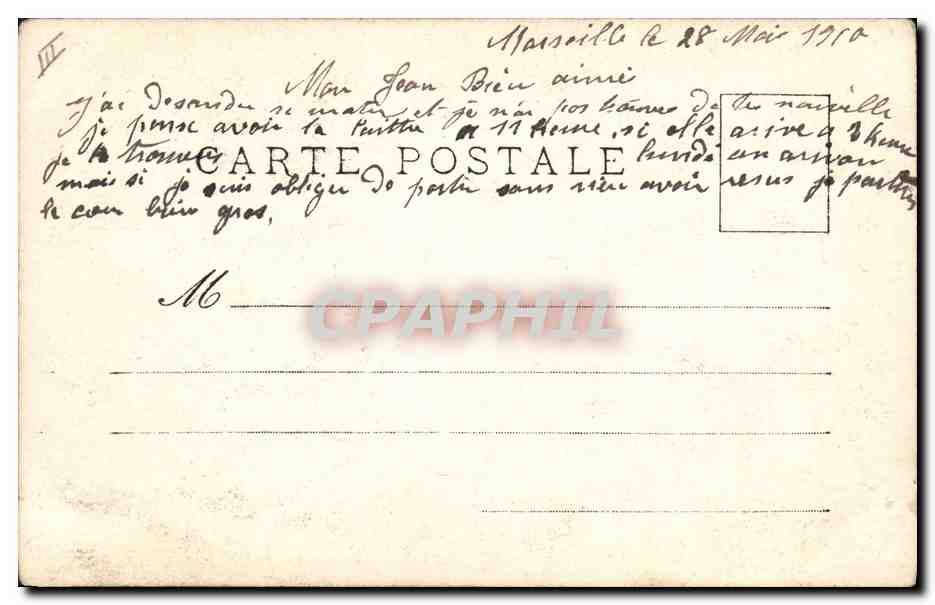 III
Marseille le 28 Mai 1910
Mon Jean Bien aimé
J'ai desendu se matin et je n'ai pas trouver de tes nouvelle
je pense avoir la lettre a 11 heure, si elle arive a 3 heure
je la trouverai lundi an arivan
CARTE POSTALE
mais si je suis obliger de partir sans rien avoir resus je partirai
le cour bien gros.
M
CPAPHIL